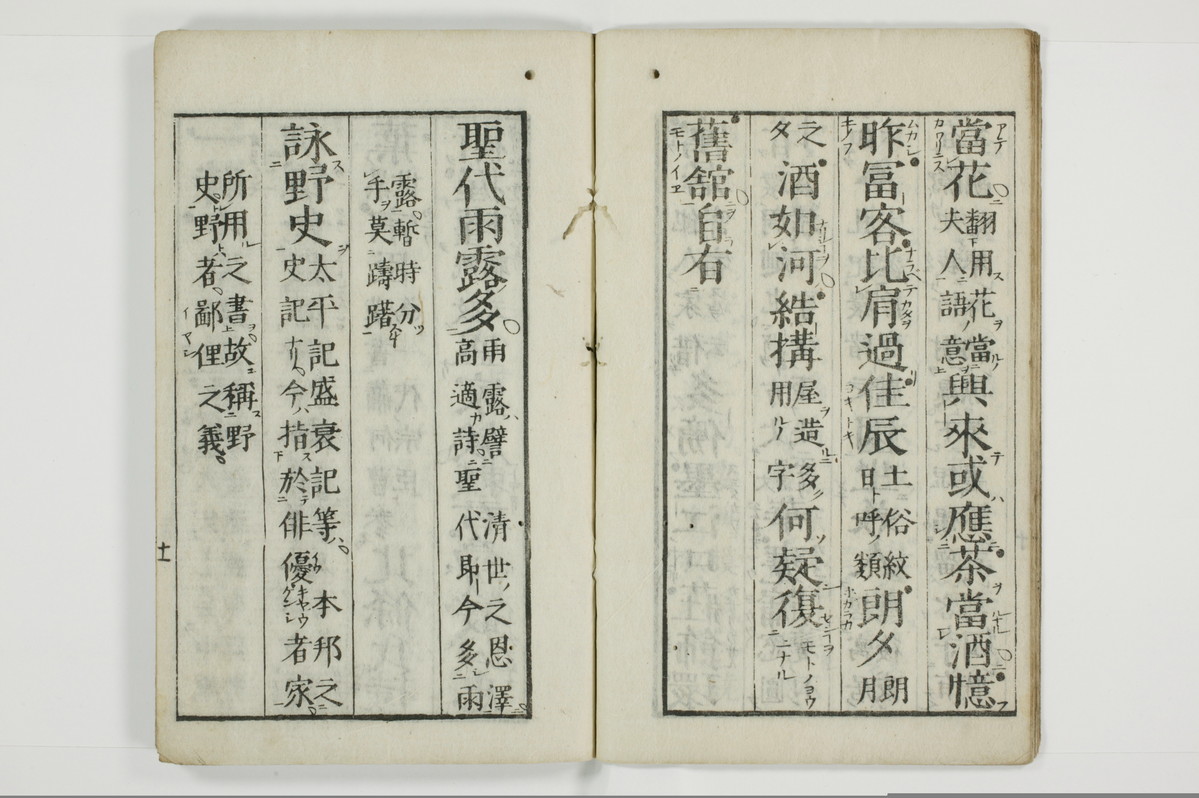 當花翻用花當夫人語意興來或應茶當酒憶
昨冨客比肩過佳辰土俗紋日ト呼類朗夕朗月
之夕酒如河結搆屋造多用ル字何疑復モトノヨウニナル
舊舘自有
聖代雨露多雨露譬清世之恩澤高適詩聖代即今多雨
露暫時分手莫躊躇
詠野史太平記盛衰記等本邦之史記ナリ今指於俳優者家
所用之書故稱野史野者鄙俚之義
十一